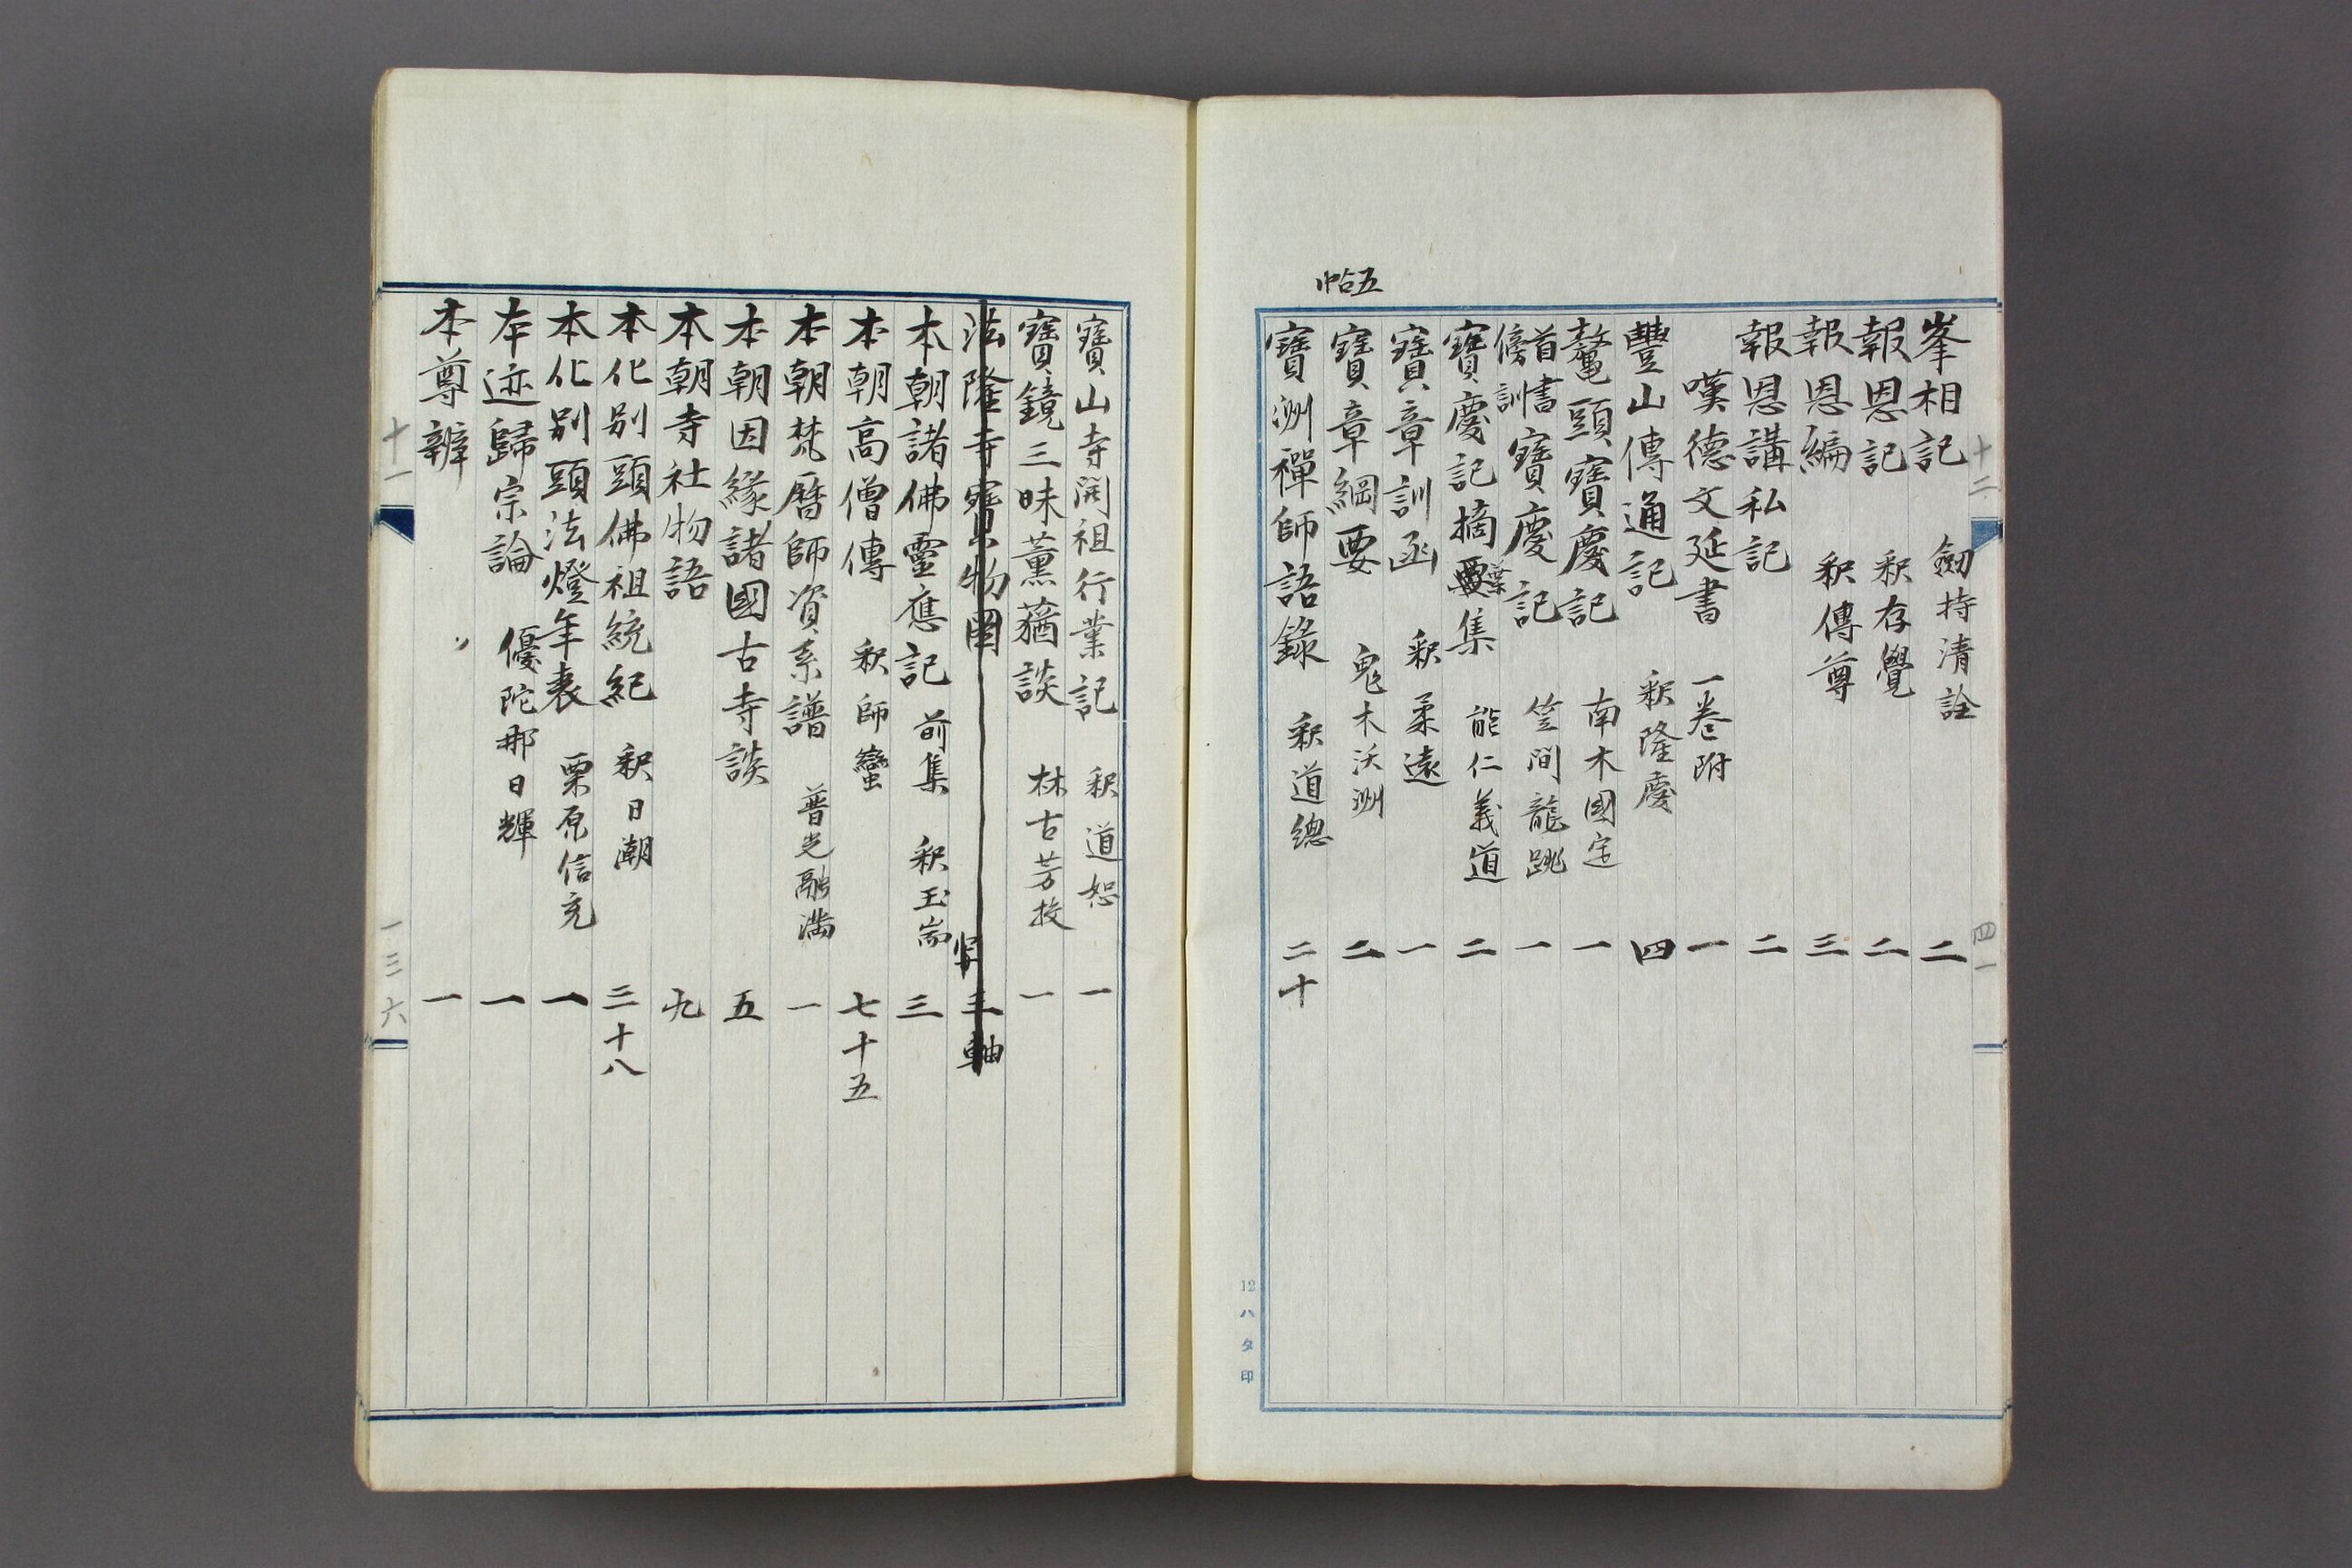 十二
四一
峯相記 釼持清詮 二
報恩記 釈存覺 二
報恩編 釈傳尊 三
報恩講私記 二
嘆德文延書 一卷附 一
豐山傳通記 釈隆慶 四
鼇頭寶慶記 南木國定 一
首書傍訓寶慶記 笠間龍跳 一
寶慶記摘葉集 能仁義道 二
寶章訓函 釈柔遠 一
寶章綱要 鬼木沃洲 二
帖五
寶洲禪師語錄 釈道總 二十
12ハタ印
寶山寺開祖行業記 釈道恕 一
寶鏡三昧薰蕕談 林古芳校 一
法隆寺寶物圖 写 三軸
本朝諸佛靈應記 前集 釈玉嵩 三
本朝高僧傳 釈師蠻 七十五
本朝梵曆師資系譜 普光融満 一
本朝因緣諸國古寺談 五
本朝寺社物語 九
本化别頭佛祖統紀 釈日潮 三十八
本化别頭法燈年表 栗原信充 一
本迹歸宗論 優陀那日輝 一
本尊辨 一
十一
一三六